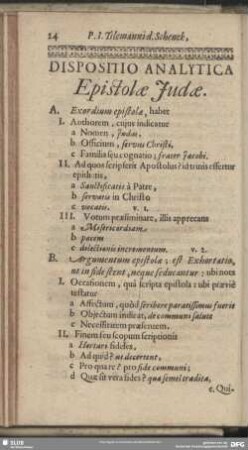 24 P. I. Tilemanni d. Schenck,
DISPOSITIO ANALYTICA
Epistolæ Judæ.
A. Exordium epistolæ, habet
I. Authorem, cujus indicatur
a Nomen, Judas.
b Officium, servus Christi.
c Familia seu cognatio; frater Jacobi.
II. Ad quos scripserit Apostolus? id tribus effertur
epithetis,
a Sanctificatis à Patre,
b servatis in Christo
c vocatis. v. 1.
III. Votum præliminare, illis apprecans
a Misericordiam.
b pacem
c dilectionis incrementum. v. 2.
B. Argumentum epistolæ; est Exhortatio,
ut in fide stent, neque seducantur: ubi nota
I. Occasionem, quâ scripta epistola: ubi præviè
testatur
a Affectum, quòd scribere paratissimus fuerit
b Objectum indicat, de communi salute
c Necessitatem præsentem.
II. Finem seu scopum scriptionis
a Hortari fideles,
b Ad quid? ut decertent.
c Pro qua re? pro fide communi;
d Quæ sit vera fides? quæ semel tradita,
e. Qui.
SLUB